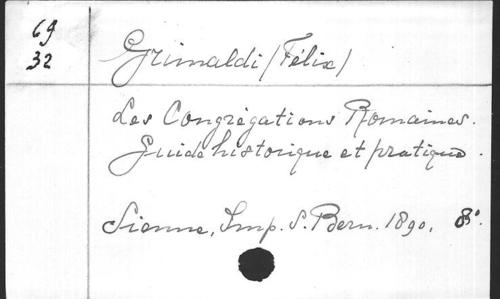 69
32
Grimaldi (Félix)
Les Congrégations Romaines.
Guide historique et pratique.
Sienne, Imp. S. Bern. 1890, 8°.